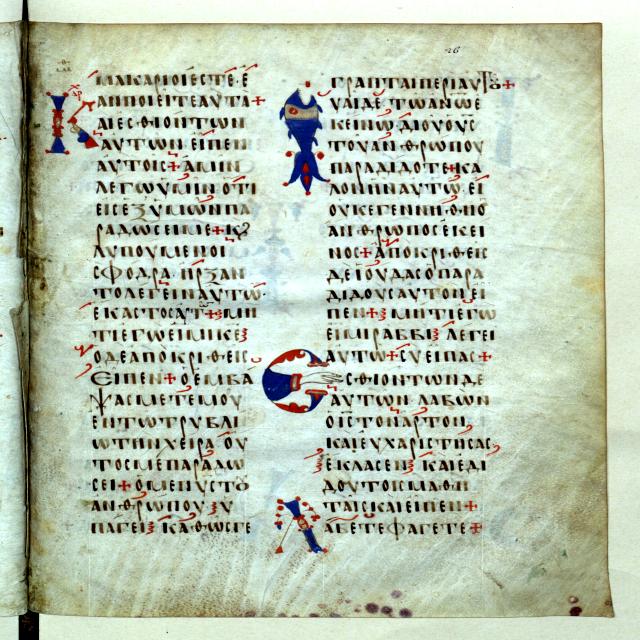 ΜΑΚΑΡΙΟΙΕΣΤΕ· Ε
ΑΝΠΟΙΕΙΤΕΑΥΤΑ+
ΚΑΙΕΣΘΙΟΝΤΩΝ
ΑΥΤΩΝ· ΕΙΠΕΝ
ΑΥΤΟΙΣ+ΑΜΗΝ
ΛΕΓΩΥΜΙΝ· ΟΤΙ
ΕΙΣΕΞΥΜΩΝΠΑ
ΡΑΔΩΣΕΜΕ+Κ
ΛΥΠΟΥΜΕΝΟΙ
ΣΦΟΔΡΑ· ΗΡΞΑΝ
ΤΟΛΕΓΕΙΝΑΥΤΩ·
ΕΚΑΣΤΟΣΑΥΤ+ΜΗ
ΤΙΕΓΩΕΙΜΙΚΕ
ΟΔΕΑΠΟΚΡΙΘΕΙΣ
ΕΙΠΕΝ+ΟΕΜΒΑ
ΨΑΣΜΕΤΕΜΟΥ
ΕΝΤΩΤΡΥΒΛΙ
ΩΤΗΝΧΕΙΡΑ· ΟΥ
ΤΟΣΜΕΠΑΡΑΔΩ
ΣΕΙ+ΟΜΕΝΥΣΤΟΥ
ΑΝΘΡΩΠΟΥ· Υ
ΠΑΓΕΙ· ΚΑΘΩΣΓΕ
ΓΡΑΠΤΑΙΠΕΡΙΑΥΤΟΥ+
ΟΥΑΙΔΕΤΩΑΝΩΕ
ΚΕΙΝΩ· ΔΙΟΥΟΥΣ
ΤΟΥΑΝΘΡΩΠΟΥ
ΠΑΡΑΔΙΔΟΤΕ+ΚΑ
ΛΟΝΗΝΑΥΤΩ· ΕΙ
ΟΥΚΕΓΕΝΝΗΘΗΟ
ΑΝΘΡΩΠΟΣΕΚΕΙ
ΝΟΣ+ΑΠΟΚΡΙΘΕΙΣ
ΔΕΙΟΥΔΑΣΟΠΑΡΑ
ΔΙΔΟΥΣΑΥΤΟΝΕΙ
ΠΕΝ+ΜΗΤΙΕΓΩ
ΕΙΜΙΡΑΒΒΙ· ΛΕΓΕΙ
ΑΥΤΩ+ΣΥΕΙΠΑΣ+
ΕΣΘΙΟΝΤΩΝΔΕ
ΑΥΤΩΝ· ΛΑΒΩΝ
ΟΙΣΤΟΝΑΡΤΟΝ·
ΚΑΙΕΥΧΑΡΙΣΤΗΣΑΣ
ΕΚΛΑΣΕΝ· ΚΑΙΕΔΙ
ΔΟΥΤΟΙΣΜΑΘΗ
ΤΑΙΣΚΑΙΕΙΠΕΝ+
ΛΑΒΕΤΕΦΑΓΕΤΕ+